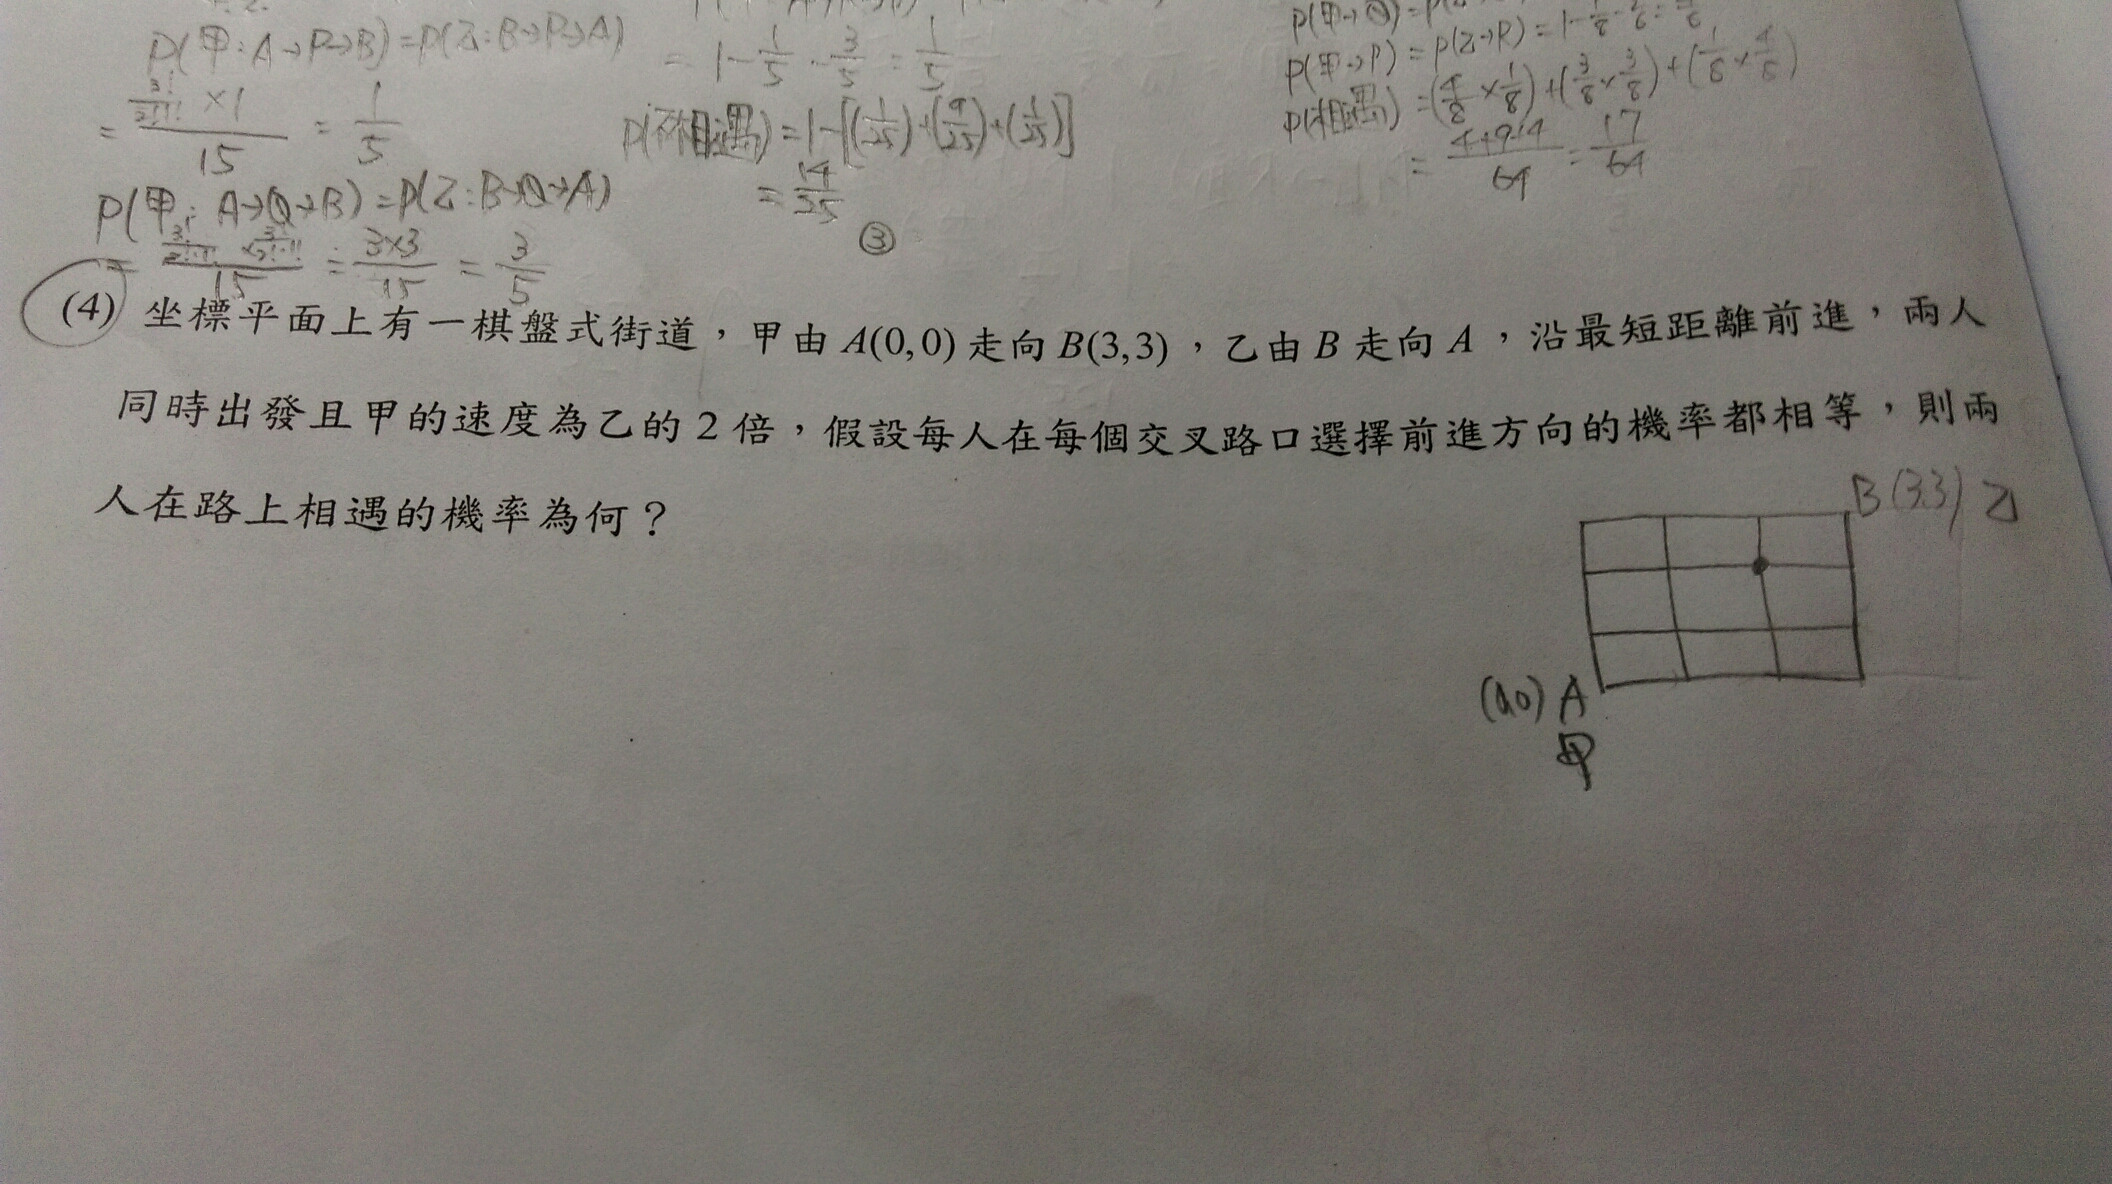 P(甲:A→P→B)=P(乙:B→P→A)
= 3!/2!1! ×1 / 15 = 1/5
P(甲: A→Q→B)=P(乙:B→Q→A)
= 3!/2!1! × 3!/2!1! / 15 = 3×3/15 = 3/5
= 1-1/5-3/5 = 1/5
P(不相遇)=1-[(1/25)+(9/25)+(1/25)]
= 14/25
③
P(甲→P)=P(乙→R)=1-
P(相遇)=(4/8×1/8)+(3/8×3/8)+(1/8×4/8)
= 4+9+4/64 = 17/64
(4) 坐標平面上有一棋盤式街道,甲由 A(0,0) 走向 B(3,3),乙由 B 走向 A,沿最短距離前進,兩人
同時出發且甲的速度為乙的 2 倍,假設每人在每個交叉路口選擇前進方向的機率都相等,則兩
人在路上相遇的機率為何?
B(3,3) 乙
(0,0) A
甲